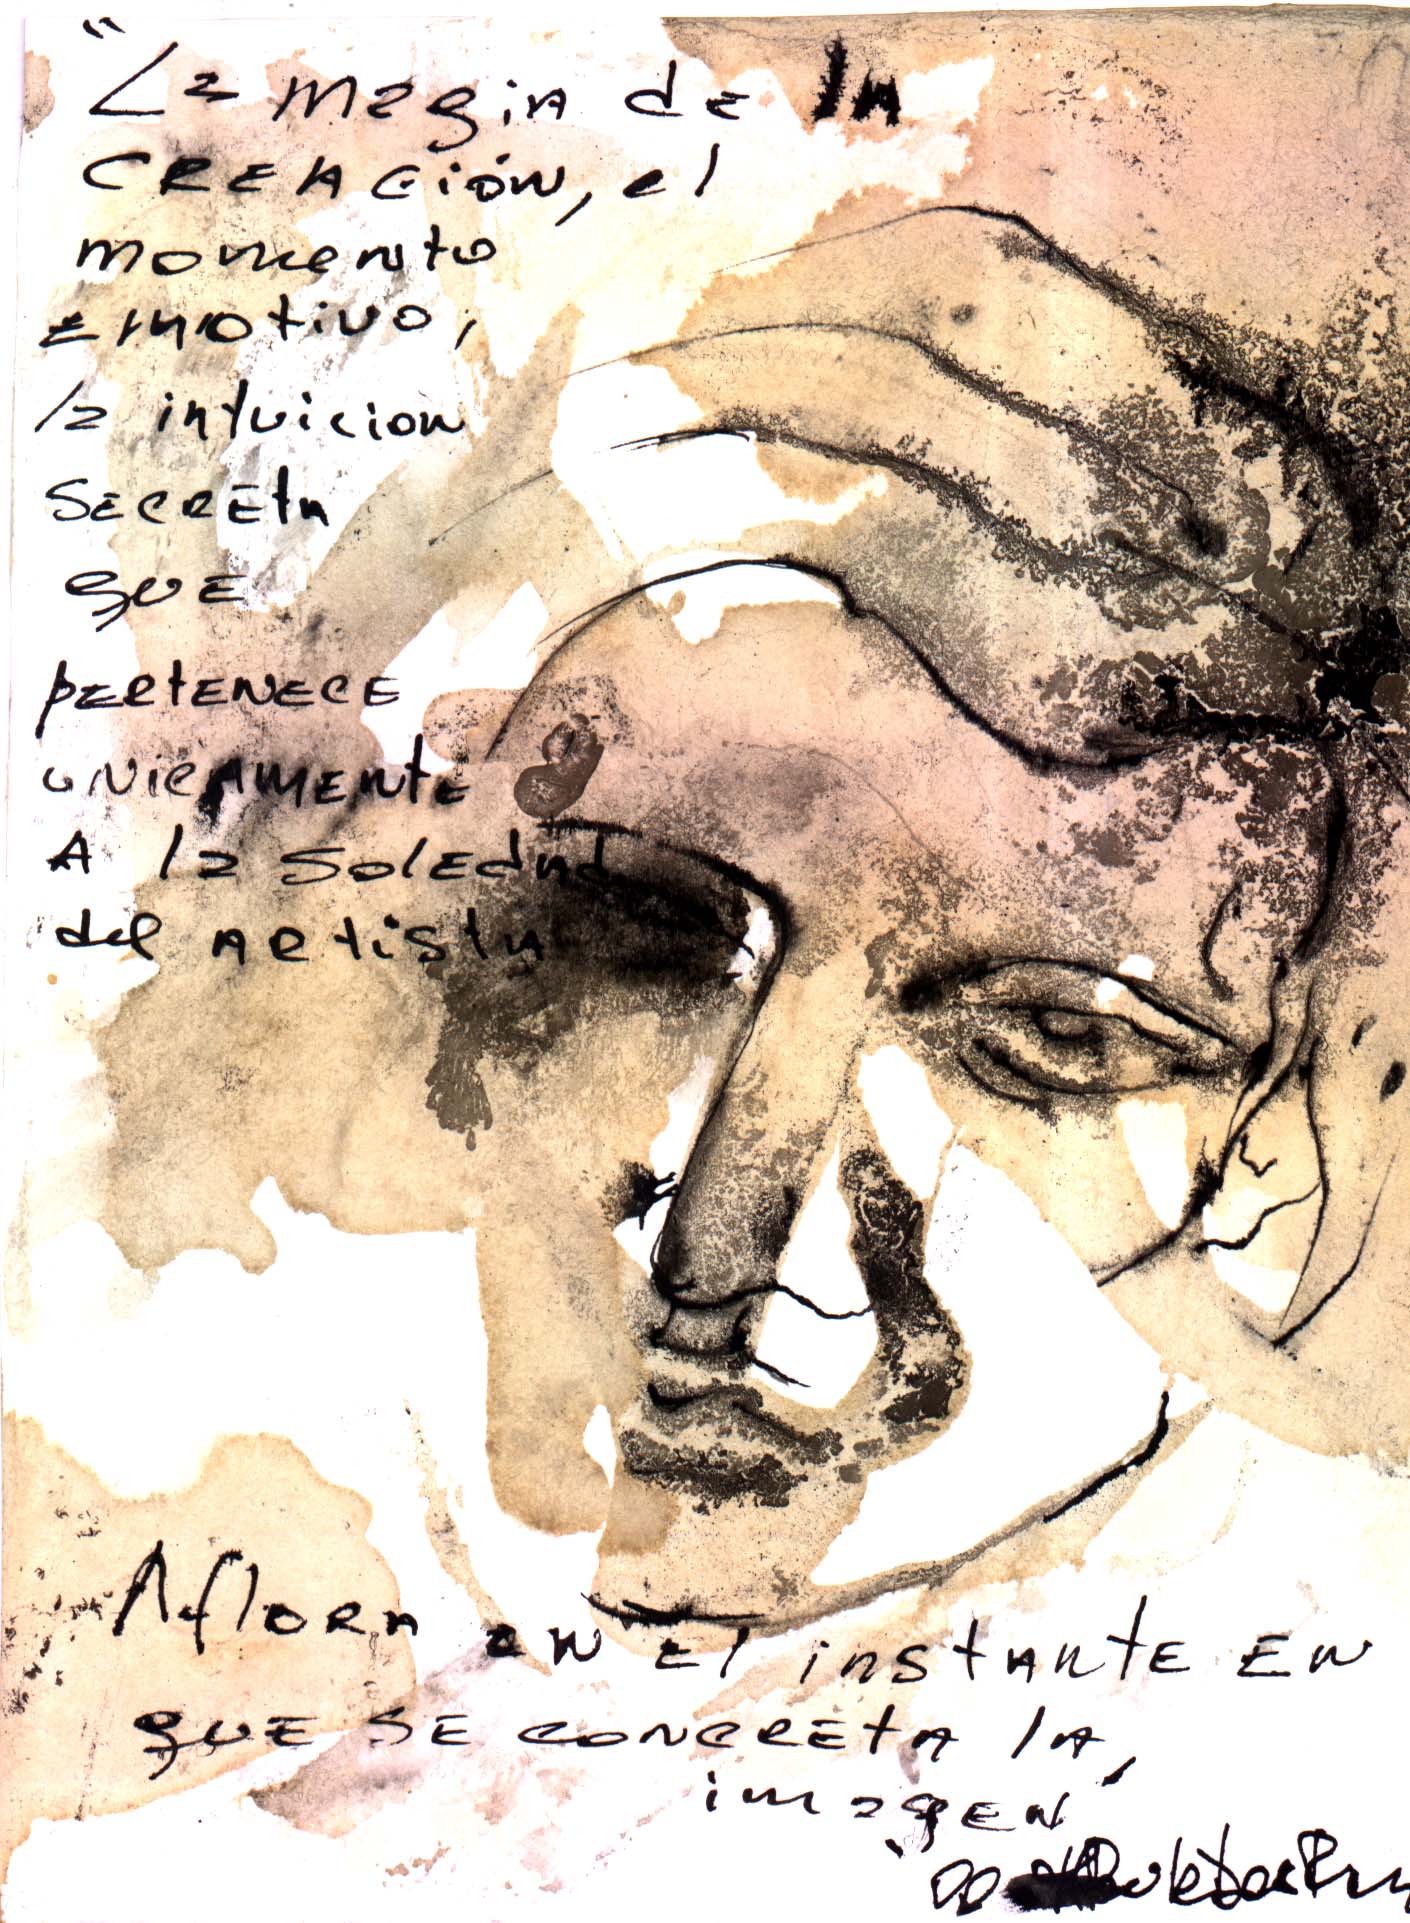 "La magia de la
CREACión, el
momento
EMOtivo,
la intuicion
SECREta
quE
pERtENECE
uNiCAMENtE
A la SolEdad
del ARtista
AfloRA EN El iNstANtE EN
quE SE CONCREtA lA,
imagEN"